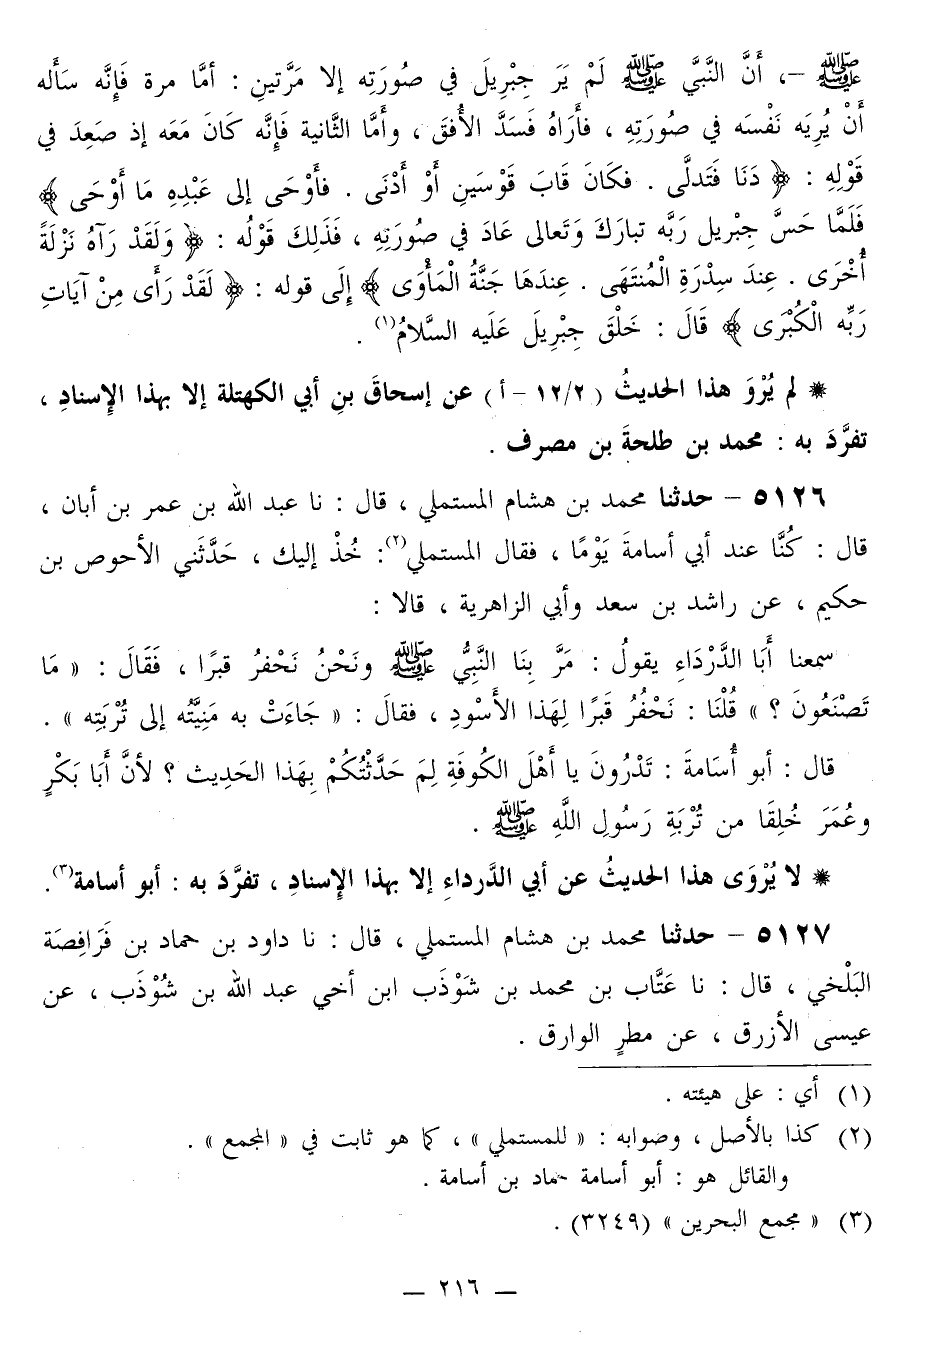 ﷺ –، أَنَّ النَّبيَّ ﷺ لَمْ يَرَ جِبْرِيلَ في صُورَتِه إلا مَرَّتينِ : أمَّا مرة فَإِنَّه سَأَله
أَنْ يُرِيَه نَفْسَه في صُورَتِهِ ، فأَرَاهُ فَسَدَّ الأُفقَ ، وأَمَّا الثَّانية فَإِنَّه كَانَ مَعَه إذ صَعِدَ في
قَوْلِهِ : ﴿ دَنَا فَتَدلَّى . فكَانَ قَابَ قَوْسَينِ أَوْ أَدْنَى . فأَوْحَى إلى عَبْدِهِ مَا أَوْحَى ﴾
فَلَمَّا حَسَّ جِبْريل رَبَّه تبارَكَ وَتَعالى عَادَ في صُورَتِهِ ، فَذَلِكَ قَوْلُه : ﴿ وَلَقَدْ رَآهُ نَزْلَةً
أُخْرَى . عِندَ سِدْرَةِ الْمُنتَهَى . عِندَهَا جَنَّةُ الْمَأْوَى ﴾ إِلَى قوله : ﴿ لَقَدْ رَأَى مِنْ آيَاتِ
رَبِّه الْكُبْرَى ﴾ قَالَ : خَلْقَ جِبْرِيلَ عَلَيه السَّلامُ(١) .
* لم يُرْوَ هذا الحديثُ ( ١٢/٢ – أ ) عن إسحاقَ بنِ أبي الكهتلة إلا بهذا الإِسنادِ ،
تفرَّدَ به : محمد بن طلحةَ بن مصرف .
٥١٢٦ – حدثنا محمد بن هشام المستملي ، قال : نا عبد الله بن عمر بن أبان ،
قال : كُنَّا عند أبي أسامةَ يَوْمًا ، فقال المستملي(٢): خُذْ إليك ، حَدَّثَني الأحوص بن
حكيم ، عن راشد بن سعد وأبي الزاهرية ، قالا :
سمعنا أَبَا الدَّرْدَاءِ يقولُ : مَرَّ بِنَا النَّبيُّ ﷺ ونَحْنُ نَحْفرُ قبرًا ، فَقَالَ : « مَا
تَصْنَعُونَ ؟ » قُلْنَا : نَحْفُرُ قَبْرًا لِهَذا الأَسْودِ ، فقالَ : « جَاءَتْ به مَنِيَّتُه إلى تُرْبَتِه » .
قال : أبو أُسَامةَ : تَدْرُونَ يا أَهْلَ الكُوفَةِ لِمَ حَدَّثْتُكُمْ بِهَذا الحَدِيث ؟ لأنَّ أَبَا بَكْرٍ
وعُمَرَ خُلِقَا من تُرْبَةِ رَسُولِ اللَّهِ ﷺ .
* لا يُرْوَى هذا الحديثُ عن أبي الدَّرداءِ إلا بهذا الإِسنادِ ، تفرَّدَ به : أبو أسامة(٣).
٥١٢٧ – حدثنا محمد بن هشام المستملي ، قال : نا داود بن حماد بن فَرَافِصَة
البَلْخي ، قال : نا عَتَّاب بن محمد بن شَوْذَب ابن أخي عبد الله بن شُوْذَب ، عن
عيسى الأزرق ، عن مطرٍ الوارق .
(١) أي : على هيئته .
(٢) كذا بالأصل ، وصوابه : « للمستملي » ، كما هو ثابت في « المجمع » .
والقائل هو : أبو أسامة حماد بن أسامة .
(٣) « مجمع البحرين » (٣٢٤٩) .
— ٢١٦ —